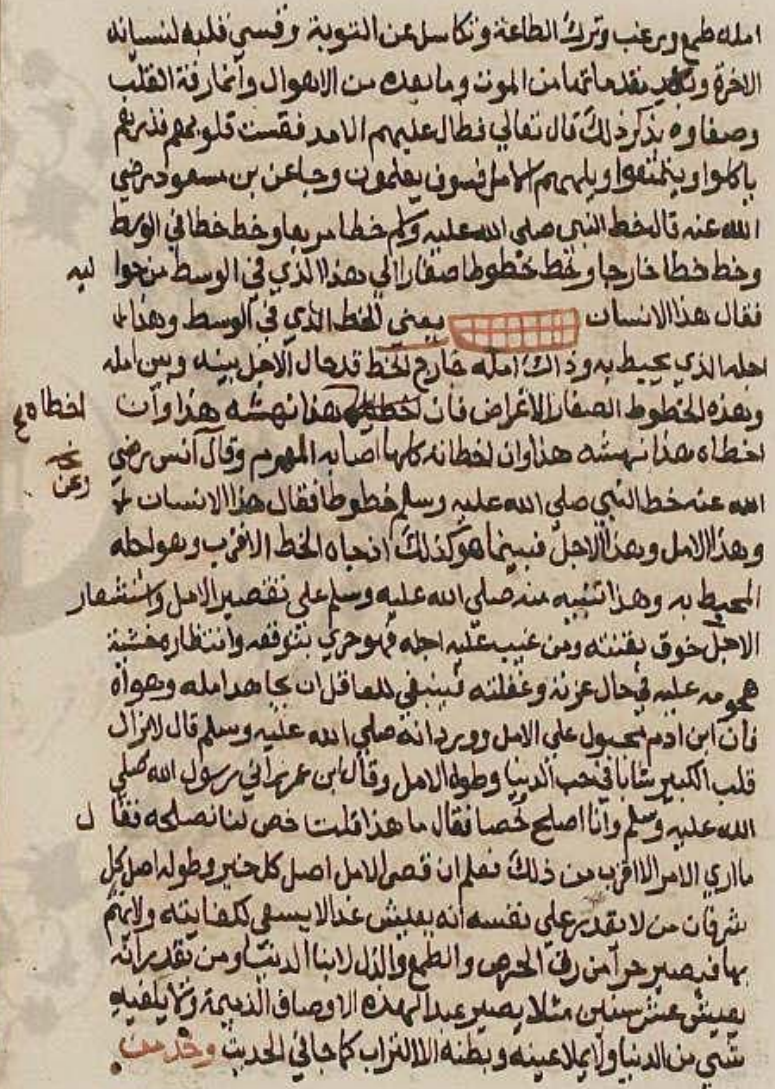 امله طمع ويرغب وترك الطاعة وتكاسل عن التوبة وقسي قلبه لنسيانه
الاخرة ومقدماتها من الموت وما بعده من الاهوال وانما رقة القلب
وصفاوه بذكر ذلك قال تعالي فطال عليهم الامد فقست قلوبهم فذرهم
ياكلوا ويتمتعوا ويلههم الامل فسوف يعلمون وجا عن بن مسعود رضي
الله عنه قال خط النبي صلي الله عليه وسلم خطا مربعا وخط خطا في الوسط
وخط خطا خارجا وخط خطوطا صغارا الي هذا الذي في الوسط من جوا
نبه
فقال هذا الانسان يعني الخط الذي في الوسط وهذا
اجله الذي يحيط به وذاك امله خارج الخط قد حال الاجل بينه وبين امله
وهذه الخطوط الصغار الاعراض فان هذا نهشه هذا وان
اخطاه
اخطاه هذا نهشه هذا وان اخطاته كلها اصابه الهرم وقال انس رضي
وعن
الله عنه خط النبي صلي الله عليه وسلم خطوطا فقال هذا الانسان
وهذا الامل وهذا الاجل فبينما هو كذلك اذ جاه الخط الاقرب وهو اجله
المحيط به وهذا تنبيه منه صلي الله عليه وسلم علي تقصير الامل واستشعار
الاجل خوف بغتته ومن غيب عليه اجله فهو حري بتوقعه وانتظاره خشية
هجومه عليه في حال غرته وغفلته فينبغي للعاقل ان يجاهد امله وهواه
فان ابن ادم مجبول علي الامل وورد انه صلي الله عليه وسلم قال لا يزال
قلب الكبير شابا في حب الدنيا وطول الامل وقال ابن عمر راني رسول الله صلي
الله عليه وسلم وانا اصلح خصا فقال ما هذا قلت خص لنا نصلحه فقال
ما اري الامر الا اقرب من ذلك فعلم ان قصر الامل اصل كل خير وطوله اصل كل
شر فان من لا يقدر علي نفسه انه يعيش غدا لا يسعي لكفايته ولا يهتم
بها فيصير حرا من رق الحرص والطمع والذل لابنا الدنيا ومن يقدر انه
يعيش عشر سنين مثلا يصير عبدا لهذه الاوصاف الذميمة ولا يكفيه
شي من الدنيا ولا يملا عينه وبطنه الا التراب كما جا في الحديث وخذ من